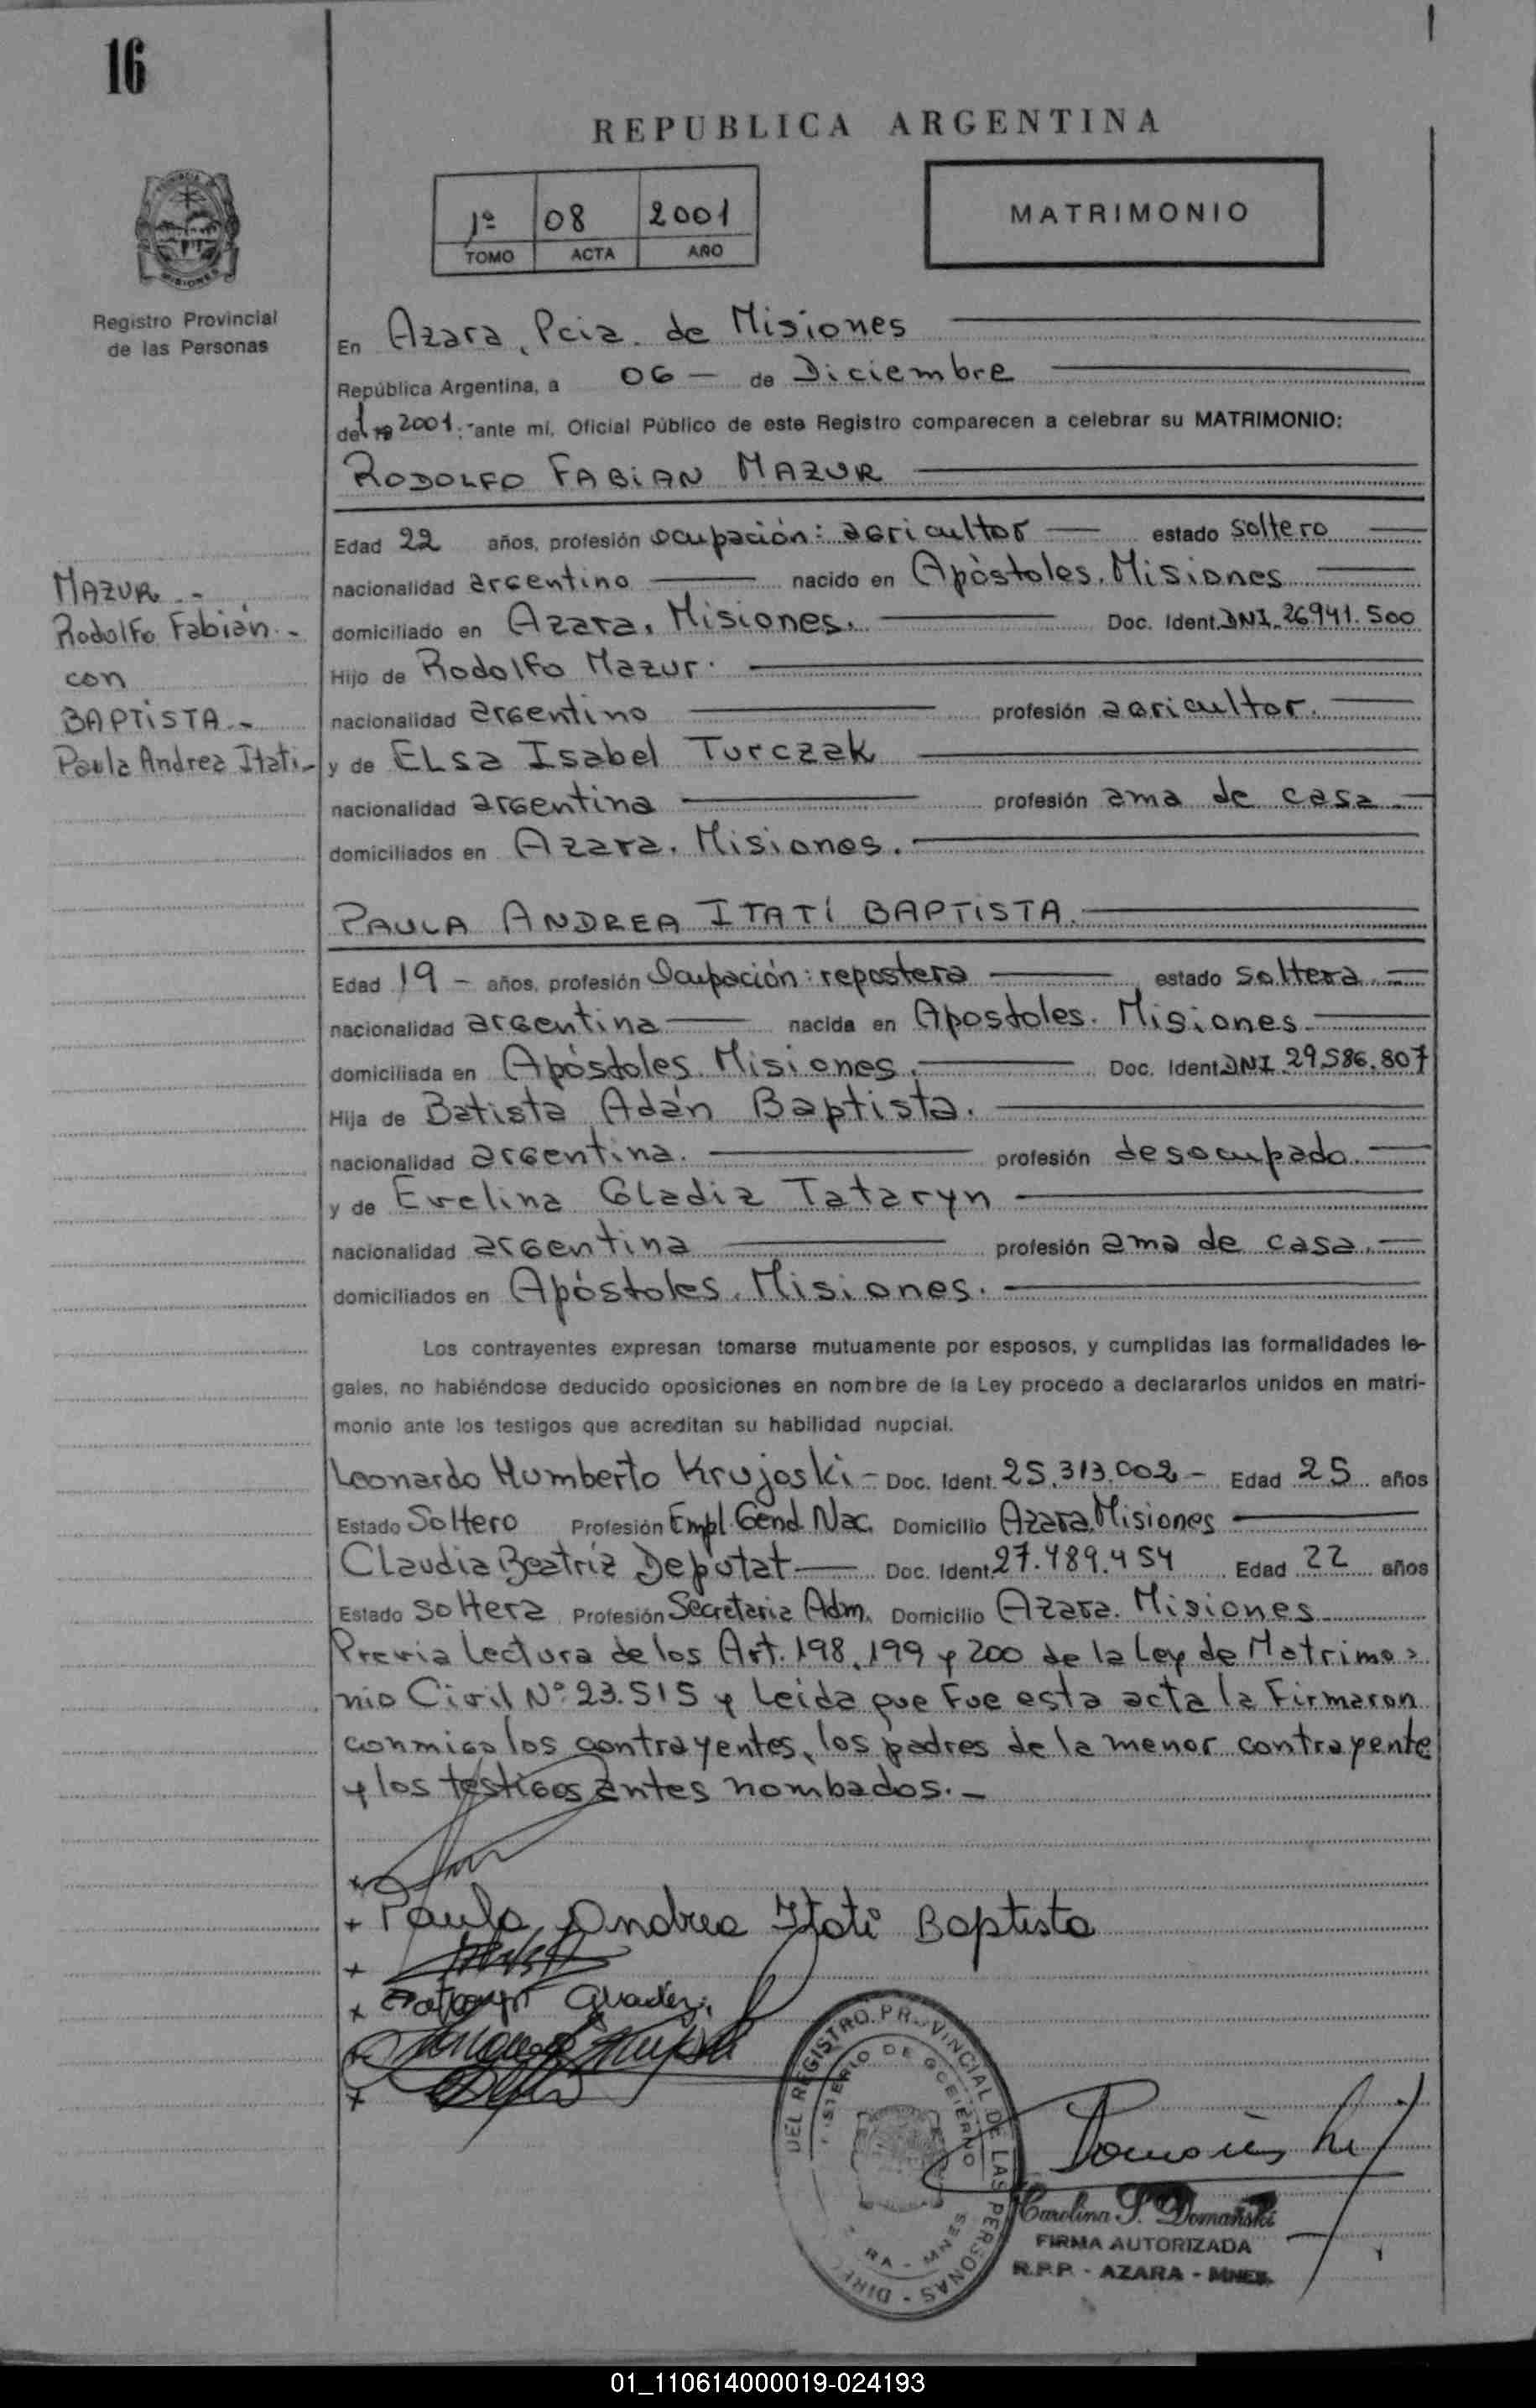 16
REPUBLICA ARGENTINA
1º 08 2001
TOMO ACTA AÑO
MATRIMONIO
Registro Provincial
de las Personas
En Azara, Pcia. de Misiones
República Argentina, a 06 — de Diciembre
del 19 2001.- ante mí, Oficial Público de este Registro comparecen a celebrar su MATRIMONIO:
RODOLFO FABIAN MAZUR
Edad 22 años, profesión ocupación: agricultor — estado soltero
nacionalidad argentino — nacido en Apóstoles. Misiones
domiciliado en Azara. Misiones. — Doc. Ident. DNI. 26.941.500
Hijo de Rodolfo Mazur.
nacionalidad argentino — profesión agricultor.
y de ELsa Isabel Turczak
nacionalidad argentina — profesión ama de casa
domiciliados en Azara. Misiones.
MAZUR.-
Rodolfo Fabián.-
con
BAPTISTA.-
Paula Andrea Itati-
PAULA ANDREA ITATÍ BAPTISTA.
Edad 19 - años, profesión Ocupación: repostera — estado soltera.
nacionalidad argentina — nacida en Apostoles. Misiones
domiciliada en Apóstoles. Misiones. — Doc. Ident. DNI. 29.586.807
Hija de Batista Adán Baptista.
nacionalidad argentina. — profesión desocupado.
y de Evelina Gladiz Tataryn
nacionalidad argentina — profesión ama de casa.
domiciliados en Apóstoles. Misiones.
Los contrayentes expresan tomarse mutuamente por esposos, y cumplidas las formalidades le-
gales, no habiéndose deducido oposiciones en nombre de la Ley procedo a declararlos unidos en matri-
monio ante los testigos que acreditan su habilidad nupcial.
Leonardo Humberto Krujoski - Doc. Ident. 25.313.002 - Edad 25 años
Estado Soltero Profesión Empl. Gend. Nac. Domicilio Azara. Misiones
Claudia Beatriz Deputat — Doc. Ident. 27.489.454 Edad 22 años
Estado soltera Profesión Secretaria Adm. Domicilio Azara. Misiones
Previa lectura de los Art. 198, 199 y 200 de la Ley de Matrimo-
nio Civil Nº 23.515 y leida que fue esta acta la firmaron
conmigo los contrayentes, los padres de la menor contrayente
y los testigos antes nombados.-
Paula Andrea Itati Baptista
DEL REGISTRO PROVINCIAL DE LAS PERSONAS
Carolina S. Domañski
FIRMA AUTORIZADA
R.P.P. - AZARA - MNES.
01_110614000019-024193